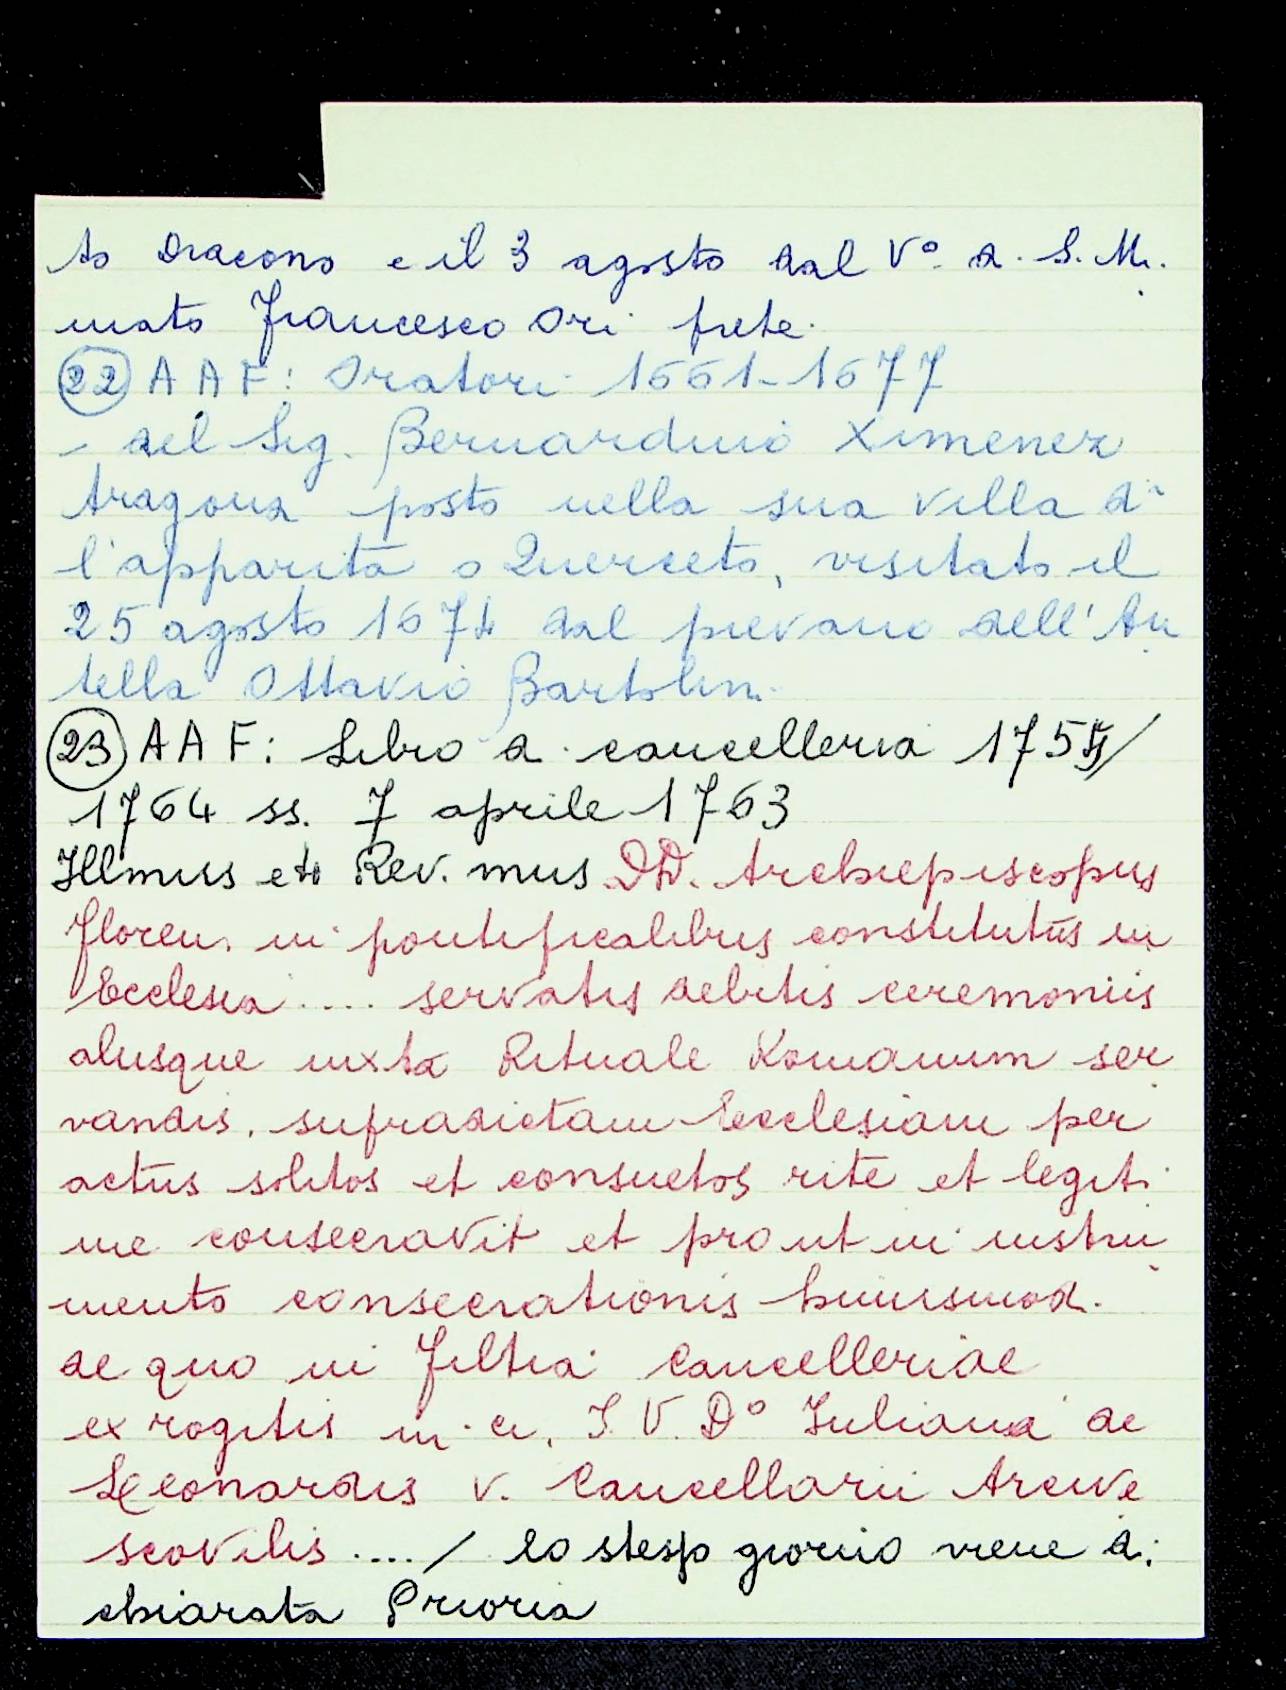 to Diacono e il 3 agosto dal V° d. S. Mi.
niato Francesco Ori prete.
22 A A F: Oratori 1661-1677
- del Sig. Bernardino Ximenez
Aragona posto nella sua villa d
l'apparita o Querceto, visitato il
25 agosto 1674 dal pievano dell'An
tella Ottavio Bartolini
23 A A F: Libro d. cancelleria 1755/
1764 ss. 7 aprile 1763
Illmus et Rev.mus DD. Archiepiscopus
floren. in pontificalibus constitutus in
Ecclesia .... servatis debitis ceremoniis
aliisque iuxta Rituale Romanum ser
vandis, supradictam Ecclesiam per
actus solitos et consuetos rite et legiti
me consecravit et prout in instru
mento consecrationis huiusmod.
de quo in filtia Cancelleriae
ex rogitis in c. I. V. D° Iuliana de
Leonardis V. Cancellarii Arcive
scovilis ..../ lo stesso giorno viene di
chiarata Prioria